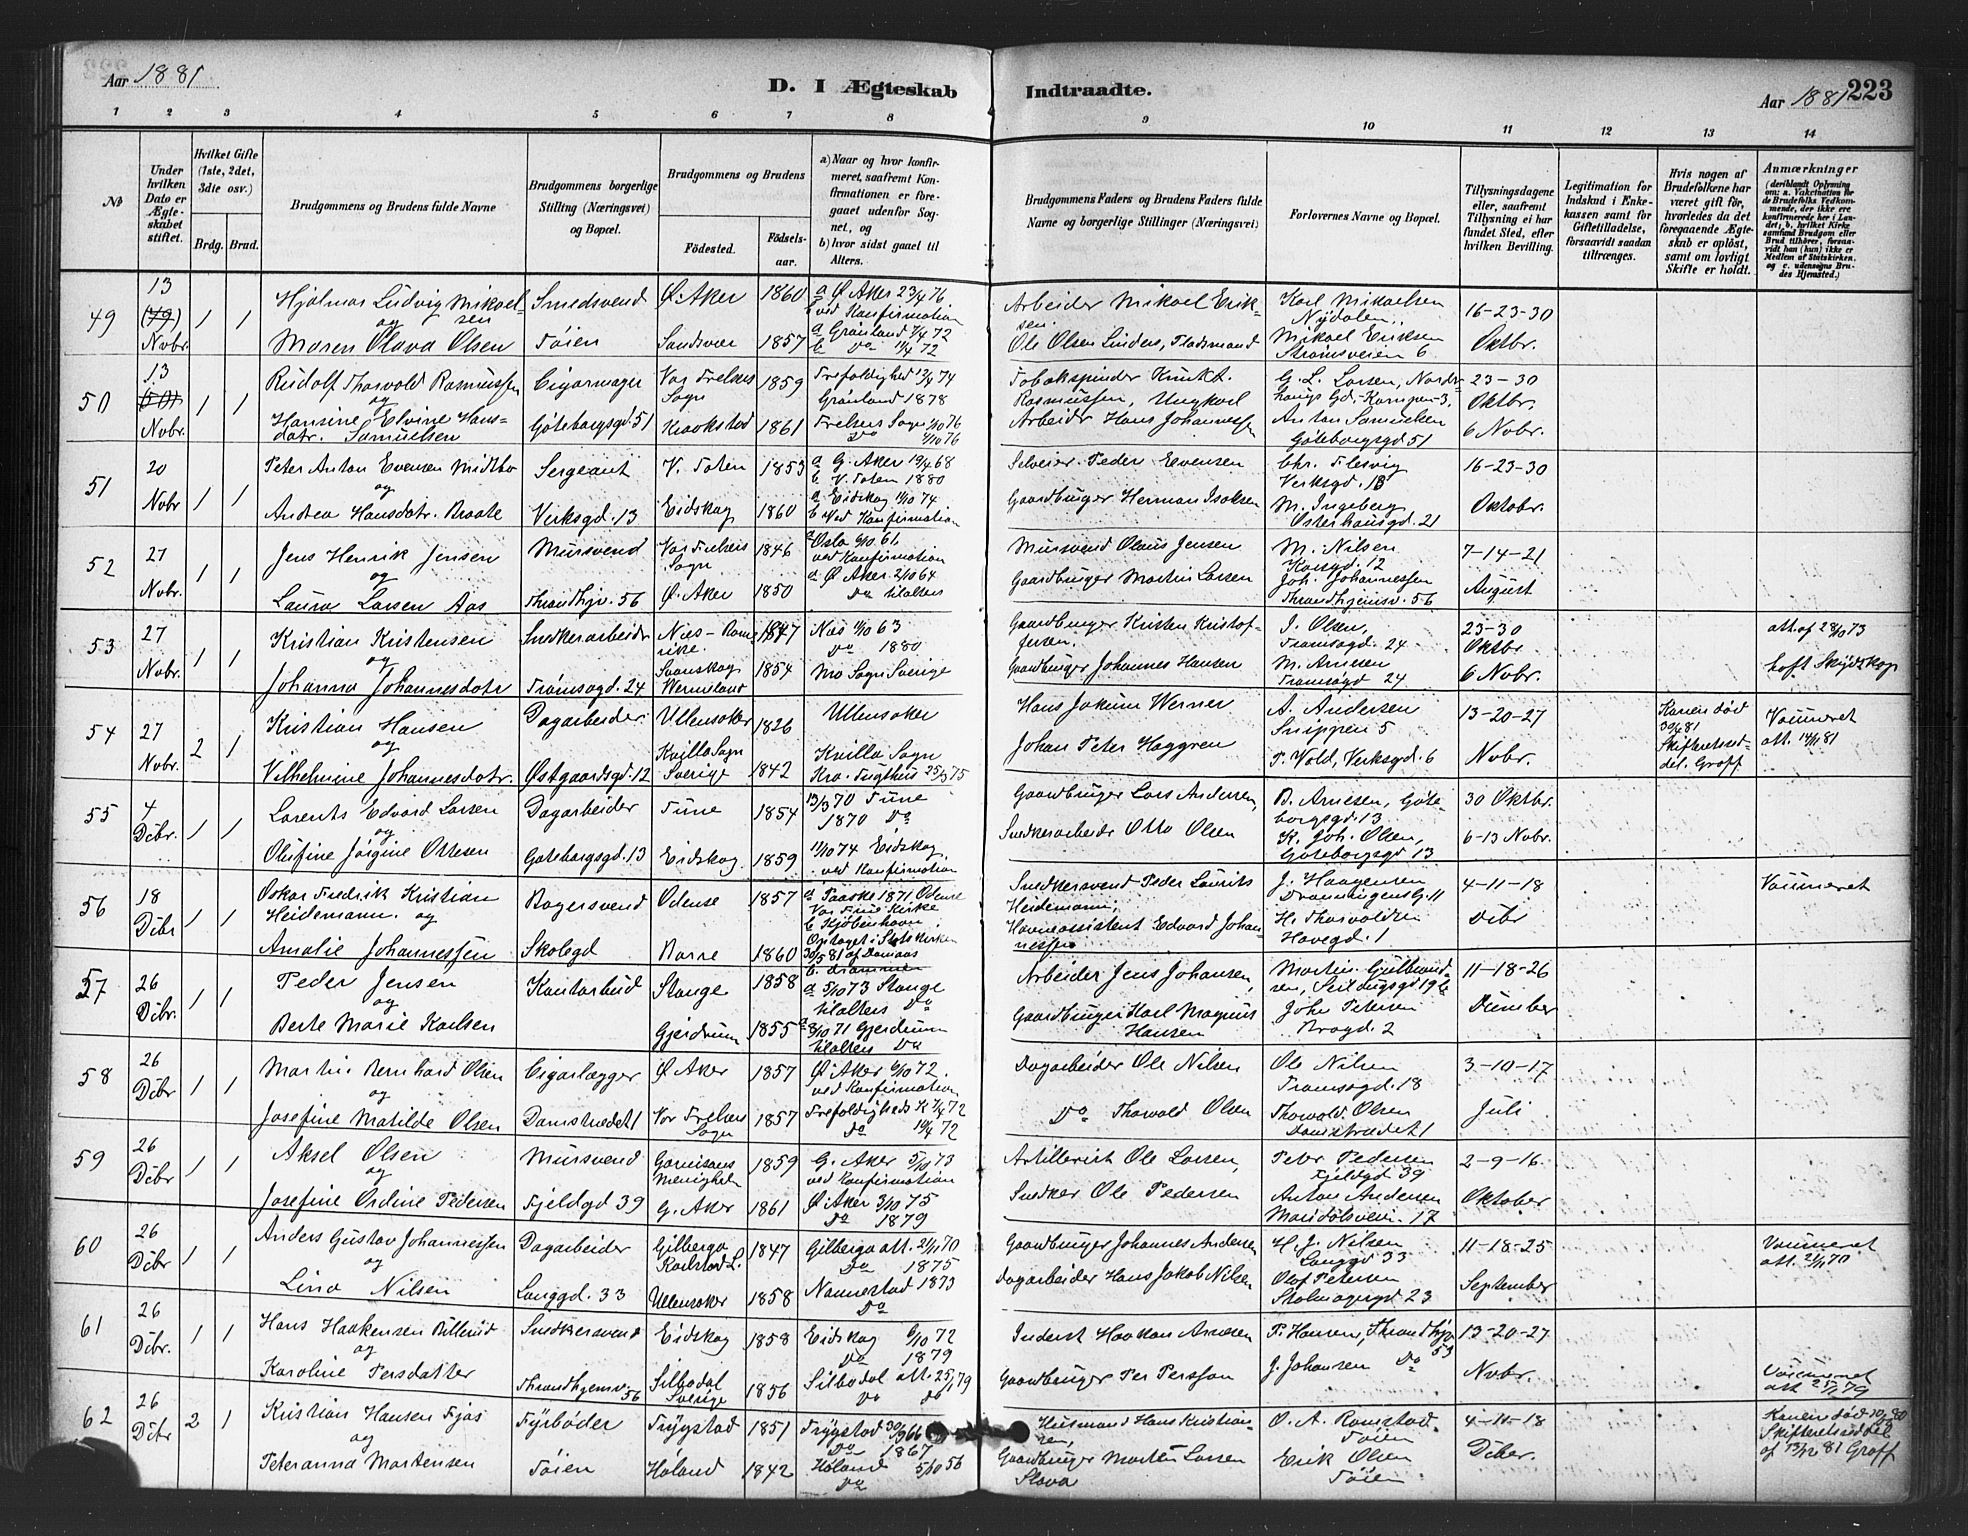 Aar 1881
D. I Ægteskab Indtraadte.
Aar 1881 223
1 2 3 4 5 6 7 8 9 10 11 12 13 14
No
Under hvilken Dato er Ægteskabet stiftet.
Hvilket Gifte (1ste, 2det, 3die osv.)
Brdg. Brud.
Brudgommens og Brudens fulde Navne
Brudgommens borgerlige Stilling (Næringsvei) og Bopæl.
Brudgommens og Brudens
Fødested. Fødsels-aar.
a) Naar og hvor konfirmeret, saafremt Konfirmationen er foregaaet udenfor Sognet, og
b) hvor sidst gaaet til Alters.
Brudgommens Faders og Brudens Faders fulde Navne og borgerlige Stillinger (Næringsvei)
Forlovernes Navne og Bopæl.
Tillysningsdagene eller, saafremt Tillysning ei har fundet Sted, efter hvilken Bevilling.
Legitimation for Indskud i Enkekassen samt for Giftetilladelse, forsaavidt saadan tiltrænges.
Hvis nogen af Brudefolkene har været gift før, hvorledes da det foregaaende Ægteskab er opløst, samt om lovligt Skifte er holdt.
Anmærkninger
(deriblandt Oplysning om: a. Vakcination for de Brudefolks Vedkommende, der ikke ere konfirmerede her i Landet; b. hvilket Kirkesamfund Brudgom eller Brud tilhører, forsaavidt han (hun) ikke er Medlem af Statskirken, og c. udensogns Brudes Hjemsted.)
49 13 (49) Novbr. 1 1
Hjalmar Ludvig Mikaelsen Smedsvend Ø. Aker 1860 a Ø. Aker 23/4 76
og b ved Konfirmation
Maren Olava Olsen Tøien Sandsvær 1857 a Grønland 7/4 72
b Do 14/4 72
Arbeider Mikael Eriksen Karl Mikaelsen Nydalen 16-23-30
Ole Olsen Linders, Pladsmand Mikael Eriksen Strømsveien 6 Oktbr.
50 13 (50) Novbr. 1 1
Rudolf Thorvald Rasmussen Cigarmager Vor Frelsers Sogn 1859 Trefoldighed 12/4 74
og Grønland 1878
Hansine Elvine Hansdatr. Samuelsen Gøteborgsgd. 51 Kraakstad 1861 Frelsers Sogn 1/10 76
Do
Tobakspinder Knut T. Rasmussen, Ungkarl G. L. Larsen, 23-30 Oktbr.
Arbeidr Hans Johannessen Anton Samuelsen Gøteborgsgd 51 6 Novbr.
51 20 Novbr 1 1
Peter Anton Evensen Midtbø Sergeant V. Toten 1853 a G. Aker 19/4 68
og b V. Toten 1880
Andrea Hansdatr. Braate Verksgd. 13 Eidskog 1860 a Eidskog 11/10 74
b Ved Konfirmation
Selveier Peder Evensen Chr. Flesvig Verksgd. 13 16-23-30
Gaardbruger Herman Isaksen M. Ingeberg Osterhausgd. 21 Oktobr.
52 27 Novbr. 1 1
Jens Henrik Jensen Mursvend Vor Frelsers Sogn 1846 a Oslo 6/10 61
og ved Konfirmation
Laura Larsen Aas Throndhjv. 56 Ø. Aker 1850 a Ø. Aker 2/10 64
Do tilalters
Mursvend Olaus Jensen M. Nilsen Korsgd. 12 7-14-21
Gaardbruger Martin Larsen Joh. Johannessen Thrandhjemsv. 56 August
53 27 Novbr. 1 1
Kristian Kristensen Snedkerarbeidr Næs-Romerike. 1847 Næs 11/10 63
og Do 1880
Johanna Johannesdatr Tromsøgd. 24 Svanskog Wermland 1854 Mo Sogn Sverige
Gaardbruger Kristen Kristoffersen J. Olsen, Tromsøgd. 24 23-30 Oktbr
Gaardbruger Johannes Hansen M. Arnesen Tromsøgd 24 6 Novbr.
att. af 28/10 73
haft Skydskop
54 27 Novbr. 2 1
Kristian Hansen Dagarbeider Ullensaker 1826 Ullensaker
og
Vilhelmine Johannesdatr. Østgaardsgd. 12 Kvilla Sogn Sverige 1842 Kvilla Sogn
Kra. Tugthus 25/3 75
Hans Jakum Werner A. Andersen Snippen 5 13-20-27
Johan Peter Haggren P. Wold, Verksgd. 6 Novbr.
Konen død 30/6 81 Skifteretsseddel. Groff
Vaccineret att. 14/11 81
55 4 Dcbr. 1 1
Lorents Edvard Larsen Dagarbeider Tune 1854 13/3 70 Tune
og 1870 Do
Olufine Jørgine Ottesen Gøteborgsgd. 13 Eidskog 1859 11/10 74 Eidskog
ved Konfirmation
Gaardbruger Lars Andersen, B. Arnesen, Gøteborgsgd. 13 30 Oktbr.
Snedkerarbeidr Otto Olsen K. Joh. Olsen, Gøteborgsgd 13 6-13 Novbr.
56 18 Dcbr 1 1
Oskar Fredrik Kristian Heidemann. og Bagersvend Odense 1857 a Paaske 1871 Odense Vor Frue Kirke
b Kjøbenhavn
Amalie Johannessen Skolegd Borre 1860 Optaget i Statskirken 30/5 81
b. Drammen
Snedkersvend Peder Laurits Heidemann, J. Haagensen Dronningens G. 11 4-11-18
Havneassistent Edvard Johannessen H. Thorvaldsen Havegd. 1 Dcbr
Vaccineret
57 26 Dcbr. 1 1
Peder Jensen Kontorbud Stange 1858 a 5/10 73 Stange
og tilalters Do
Berte Marie Karlsen Gjerdrum 1855 a 8/10 71 Gjerdrum
tilalters Do
Arbeider Jens Johansen, Martin Gulbrandsen, 11-18-26
Gaardbruger Karl Magnus Hansen Johs Petersen Brogd. 2
58 26 Dcbr 1 1
Martin Bernhard Olsen Cigarlægger Ø. Aker 1857 Ø. Aker 6/10 72.
og ved Konfirmation
Josefine Matilde Olsen Damstrædet 1 Vor Frelsers Sogn 1857 Trefoldigheds K 7/4 72
Do 14/4 72
Dagarbeider Ole Nilsen Ole Nilsen Tromsøgd. 18 3-10-17
Do Thorvald Olsen Thorvald Olsen Damstrædet 1 Juli
59 26 Dcbr 1 1
Aksel Olsen Mursvend Garnisons Menighed 1859 G. Aker 5/10 73
og ved Konfirmation
Josefine Ordine Pedersen Fjeldgd 39 G. Aker 1861 Ø. Aker 3/10 75
Do 1879
Artillerist Ole Larsen, Petr Pedersen Fjeldgd 39 2-9-16.
Snedker Ole Pedersen Anton Andersen Maridalsvein. 17 Oktober
60 26 Dcbr 1 1
Anders Gustav Johannessen Dagarbeider Gilberga Karlstad L. 1847 Gilberga att. 21/11 70
og Do 1875
Lina Nilsen Langgd. 33 Ullensaker 1858 Nannestad 1873
Do
Gaardbruger Johannes Andersen H. J. Nilsen Langgd 33 11-18-25
Dagarbeider Hans Jakob Nilsen Olof Petersen Stolmagergd 23 September
Vaccineret att. 21/11 70
61 26 Dcbr. 1 1
Hans Haakensen Billerud Snedkersvend Eidskog 1858 Eidskog 6/10 72
og Do 1879
Karoline Persdatter Thrandhjemsv. 56 Silbodal Sverige 1856 Silbodal att. 25/1 79
Do do
Inderst Haakan Arnesen P. Hansen, Thrandhjv 53 13-20-27
Gaardbruger Per Persson J. Johansen Do Novbr.
Vaccineret att 25/1 79
62 26 Dcbr 2 1
Kristian Hansen Fjøs Fyrbøder Trygstad 1851 Trygstad 30/9 66
og Do 1867
Peteranna Mortensen Tøien Høland 1842 Høland 5/10 56
Do
Husmand Hans Kristiansen, O. A. Romstad Tøien 4-11-18
Gaardbruger Morten Larsen Slova Erik Olsen Tøien Dcber.
Konen død 10/ 80 Skifteretsseddel af 13/12 81 Groff